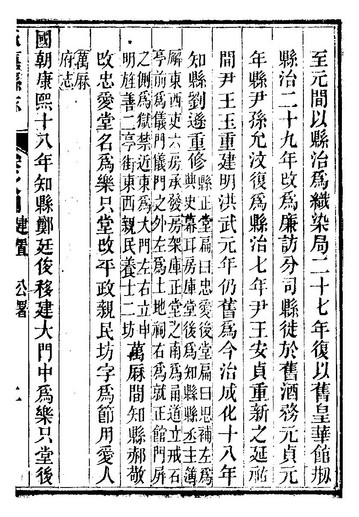 至元間以縣治爲織染局二十七年復以舊皇華館剏
縣治二十九年改爲廉訪分司縣徙於舊酒務元貞元
年縣尹孫允汶復爲縣治七年尹王安貞重新之延祐
間尹王玉重建明洪武元年仍舊爲今治成化十八年
知縣劉遜重修
縣正堂扁曰忠愛後堂扁曰思補左爲
典史幕耳房庫堂後爲知縣縣丞主簿
廨東西吏六房承發房架庫正堂之南爲甬道立戒石
亭前爲儀門儀門之外左爲土地祠右爲就正館門屏
之側爲獄禁近東爲大門左右立申
明旌善二亭街東西親民養士二坊
萬厤間知縣郝敬
改忠愛堂名爲樂只堂改平政親民坊字爲節用愛人
萬厤
府志
國朝康熙十八年知縣鄭廷俊移建大門中爲樂只堂後
縣志
建置
公署